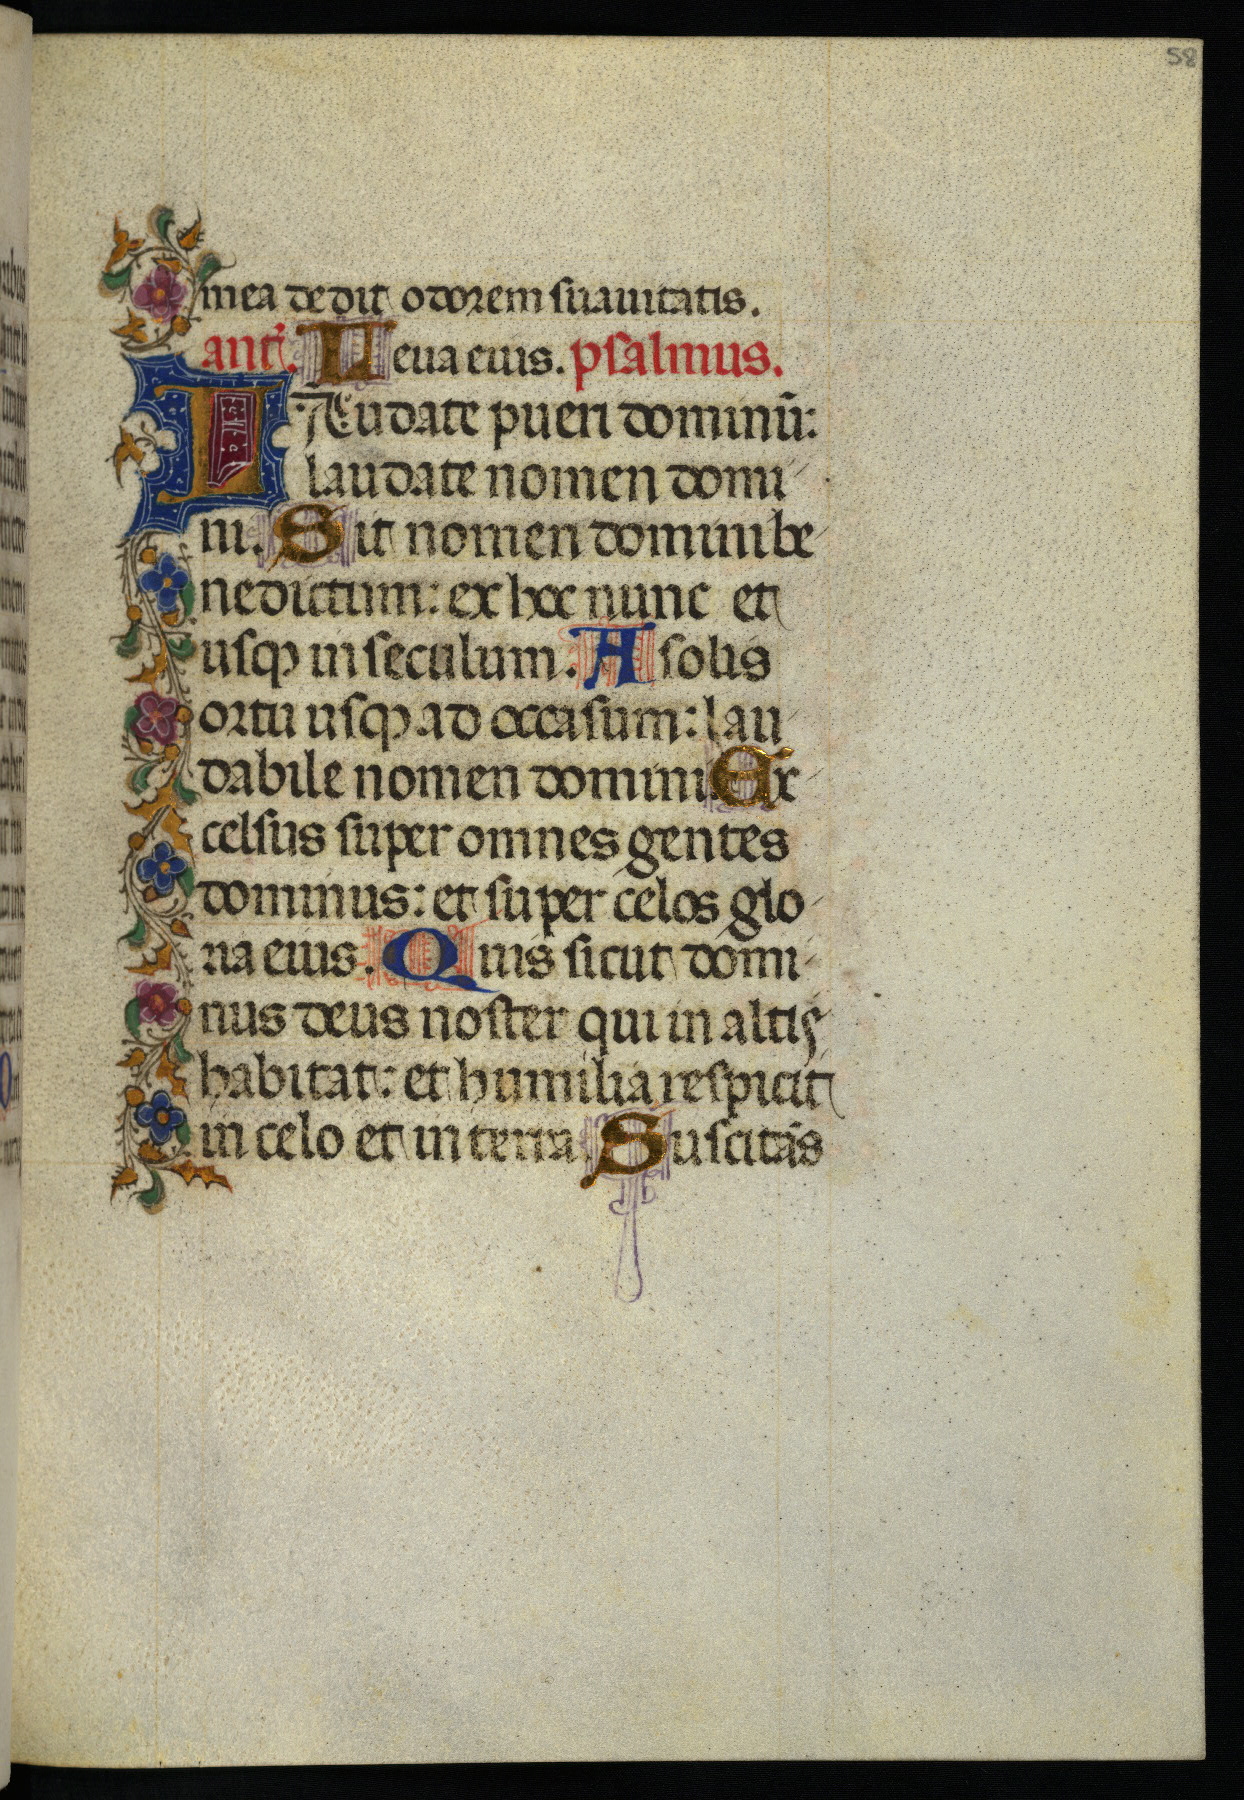 58
mea dedit odorem suauitatis.
ant. Leua eius. psalmus.
LAudate pueri dominū:
laudate nomen domi
ni. Sit nomen domini be
nedictum: ex hoc nunc et
usqꝫ in seculum. A solis
ortu usqꝫ ad occasum: lau
dabile nomen domini. Ex
celsus super omnes gentes
dominus: et super celos glo
ria eius. Quis sicut domi
nus deus noster qui in altis
habitat: et humilia respicit
in celo et in terra. Suscitās